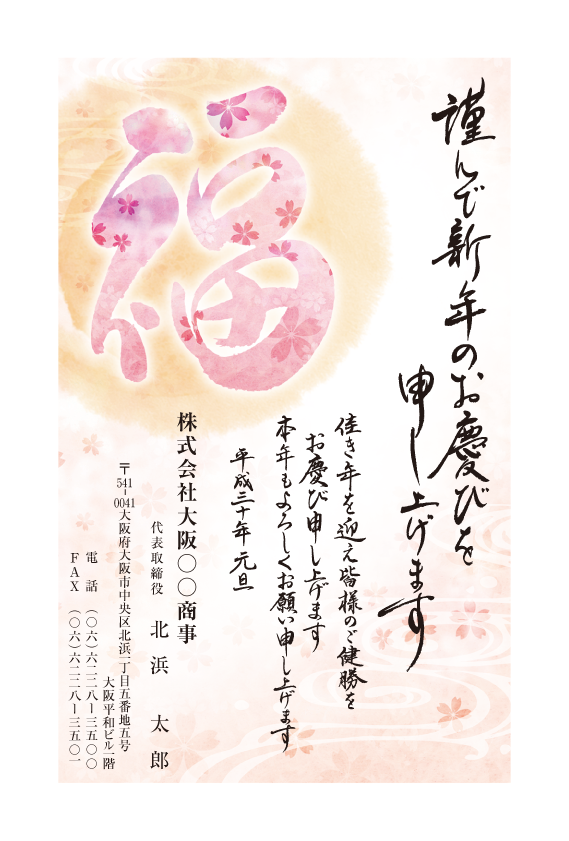 謹んで新年のお慶びを
申し上げます
佳き年を迎え皆様のご健勝を
お慶び申し上げます
本年もよろしくお願い申し上げます
平成三十年 元旦
福
株式会社大阪〇〇商事
代表取締役 北浜 太郎
〒541-0041大阪府大阪市中央区北浜一丁目五番地五号
大阪平和ビル一階
電話 (〇六)六二二八ー三五〇〇
FAX (〇六)六二二八ー三五〇一